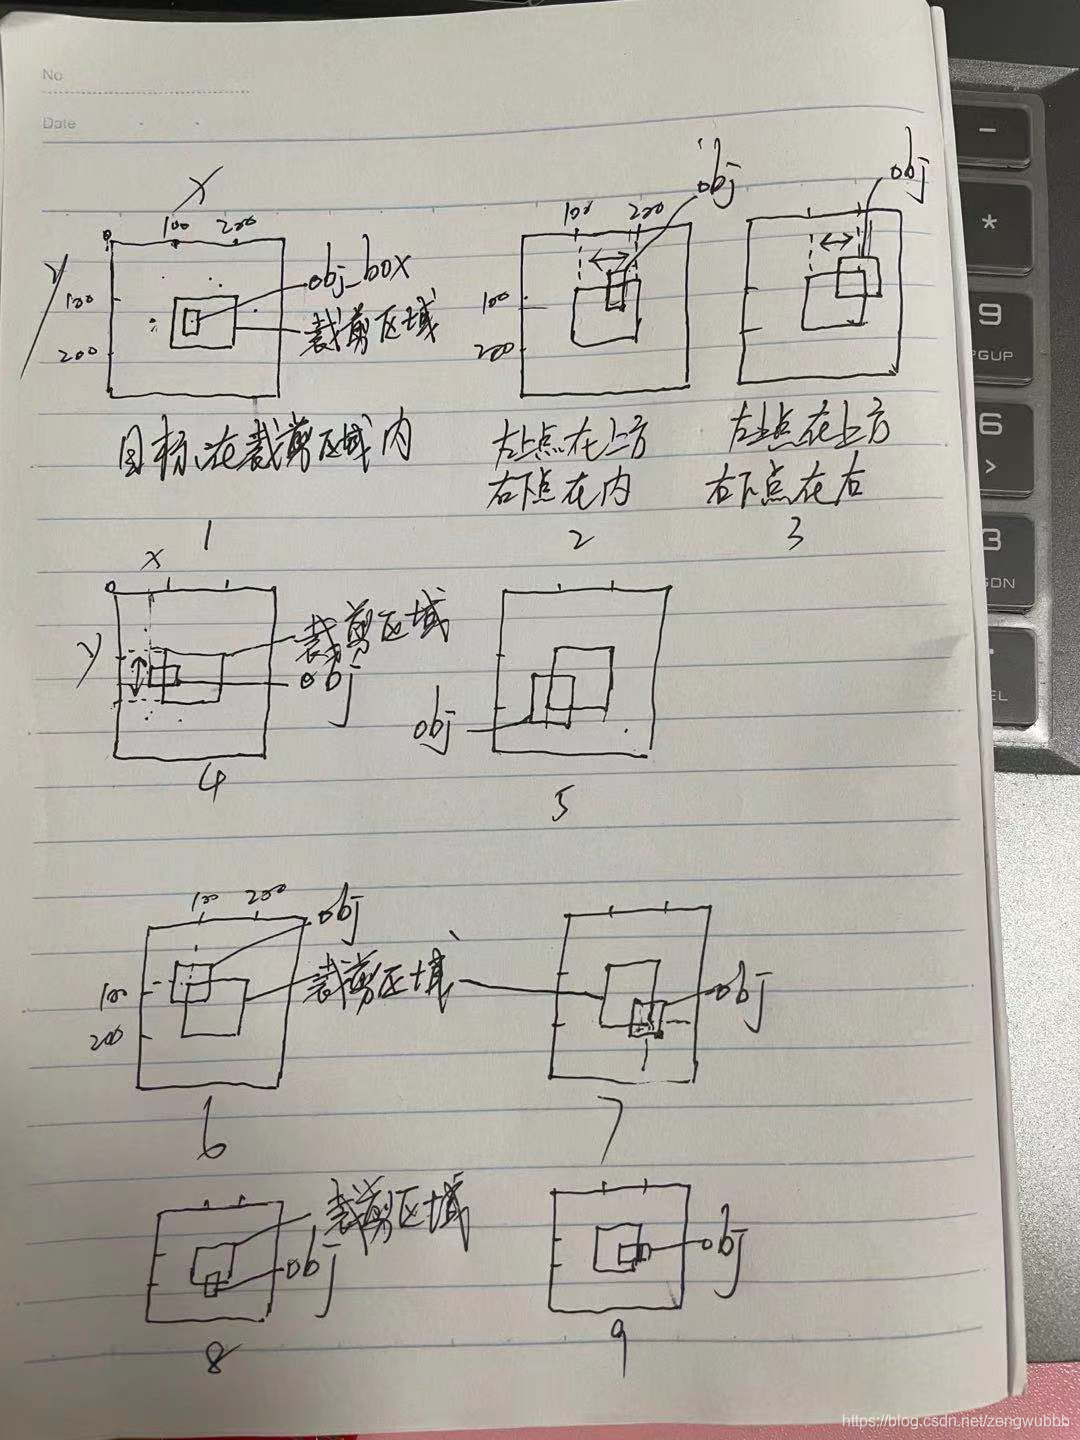 No
Date
X
obj
obj
0
100
200
100
200
y
obj_box
100
100
裁剪区域
200
200
目标在裁剪区域内
左上点在上方
左上点在上方
右下点在内
右下点在右
1
2
3
x
0
裁剪区域
y
obj
obj
4
5
100
200
obj
裁剪区域
100
obj
200
6
7
裁剪区域
obj
obj
8
9
-
*
9
PGUP
6
>
3
https://blog.csdn.net/zengwubbb